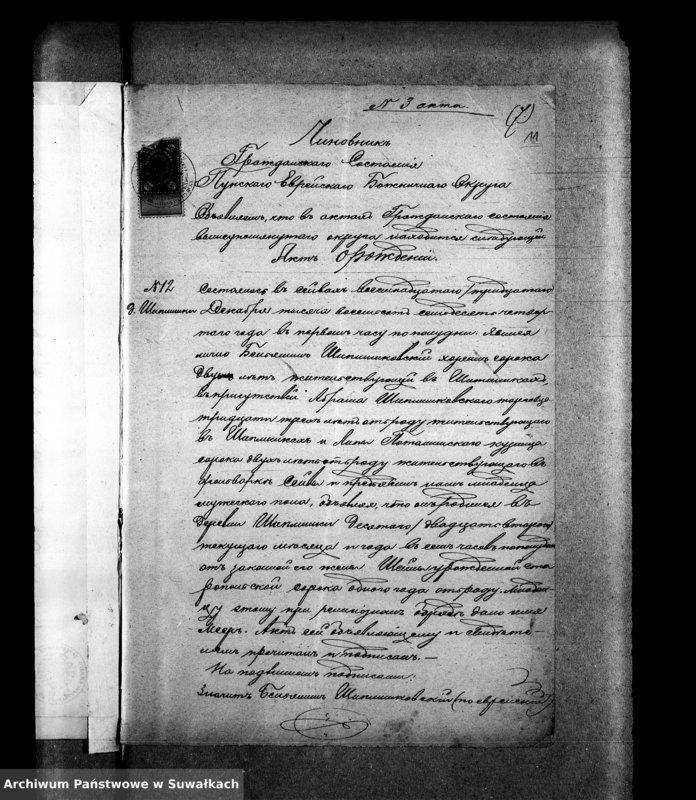 № 3 акта.
11
Чиновникъ
Гражданскаго Состоянія
Пунскаго Еврейскаго Божничнаго Округа
Объявляемъ, что въ актахъ Гражданскаго состоянія
вышеупомянутаго округа находится слѣдующій
Актъ о рожденіи.
№12
д. Шиплишки
Состоялось въ Сейнахъ восемнадцатаго/тридцатаго
Декабря тысяча восемьсотъ семьдесятъ четвер-
таго года въ первомъ часу по полудни. Явился
лично Беньяминъ Шиплишковскій сорока
двухъ лѣтъ жительствующій въ Шиплишкахъ,
въ присутствіи Абрама Шиплишковскаго торговца
тридцати трехъ лѣтъ отъ роду жительствующаго
въ Шиплишкахъ и
сорока двухъ лѣтъ отъ роду жительствующаго въ
и предъявилъ намъ младенца
мужескаго пола, объявляя, что онъ родился въ
деревни Шиплишки десятаго/двадцать втораго
текущаго мѣсяца и года въ семь часовъ пополудни
отъ законной его жены Шейны урожденной
сорока одного года отъ роду. Младен-
цу этому при религіозномъ обрядѣ дано имя
Мееръ. Актъ сей объявляющему и свидѣте-
лямъ прочитанъ и подписанъ.—
На подлинномъ подписали:
значитъ Беньяминъ Шиплишковскій (по еврейски)
Archiwum Państwowe w Suwałkach